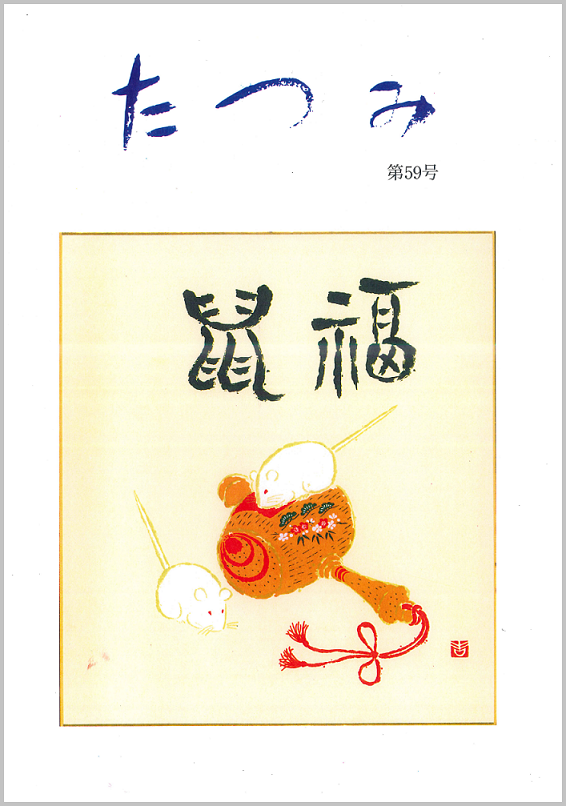 たつみ
第59号
福鼠